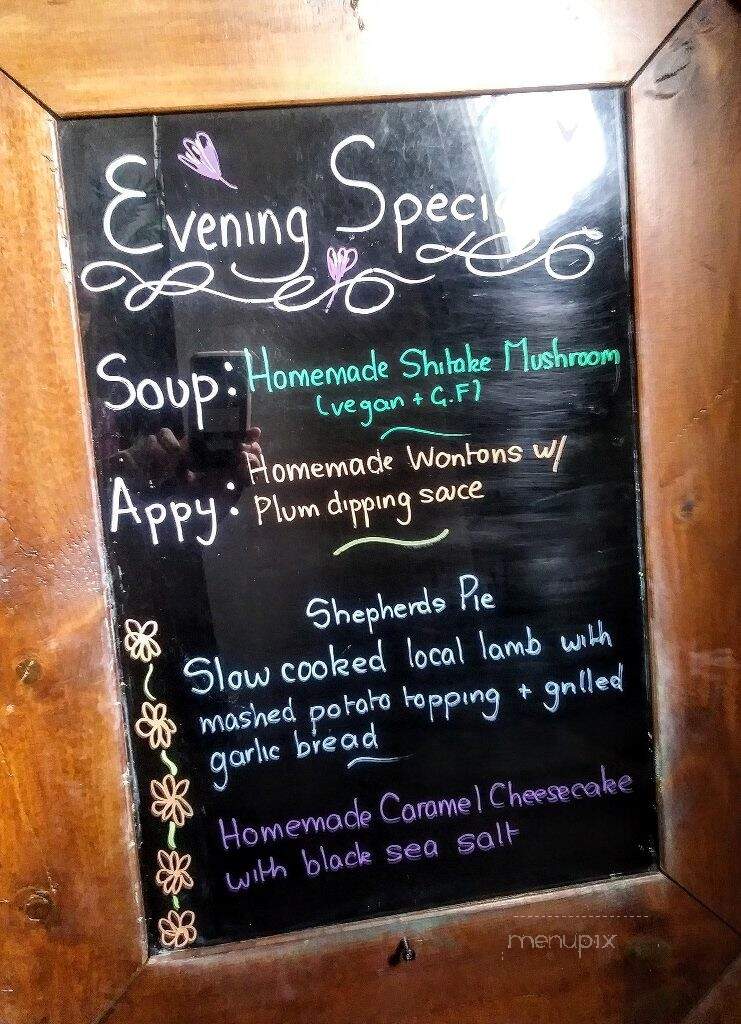 Evening Speci
Soup: Homemade Shitake Mushroom
(vegan + G.F)
Appy: Homemade Wontons w/
Plum dipping sauce
Shepherds Pie
Slow cooked local lamb with
mashed potato topping + grilled
garlic bread
Homemade Caramel Cheesecake
with black sea salt
menupix